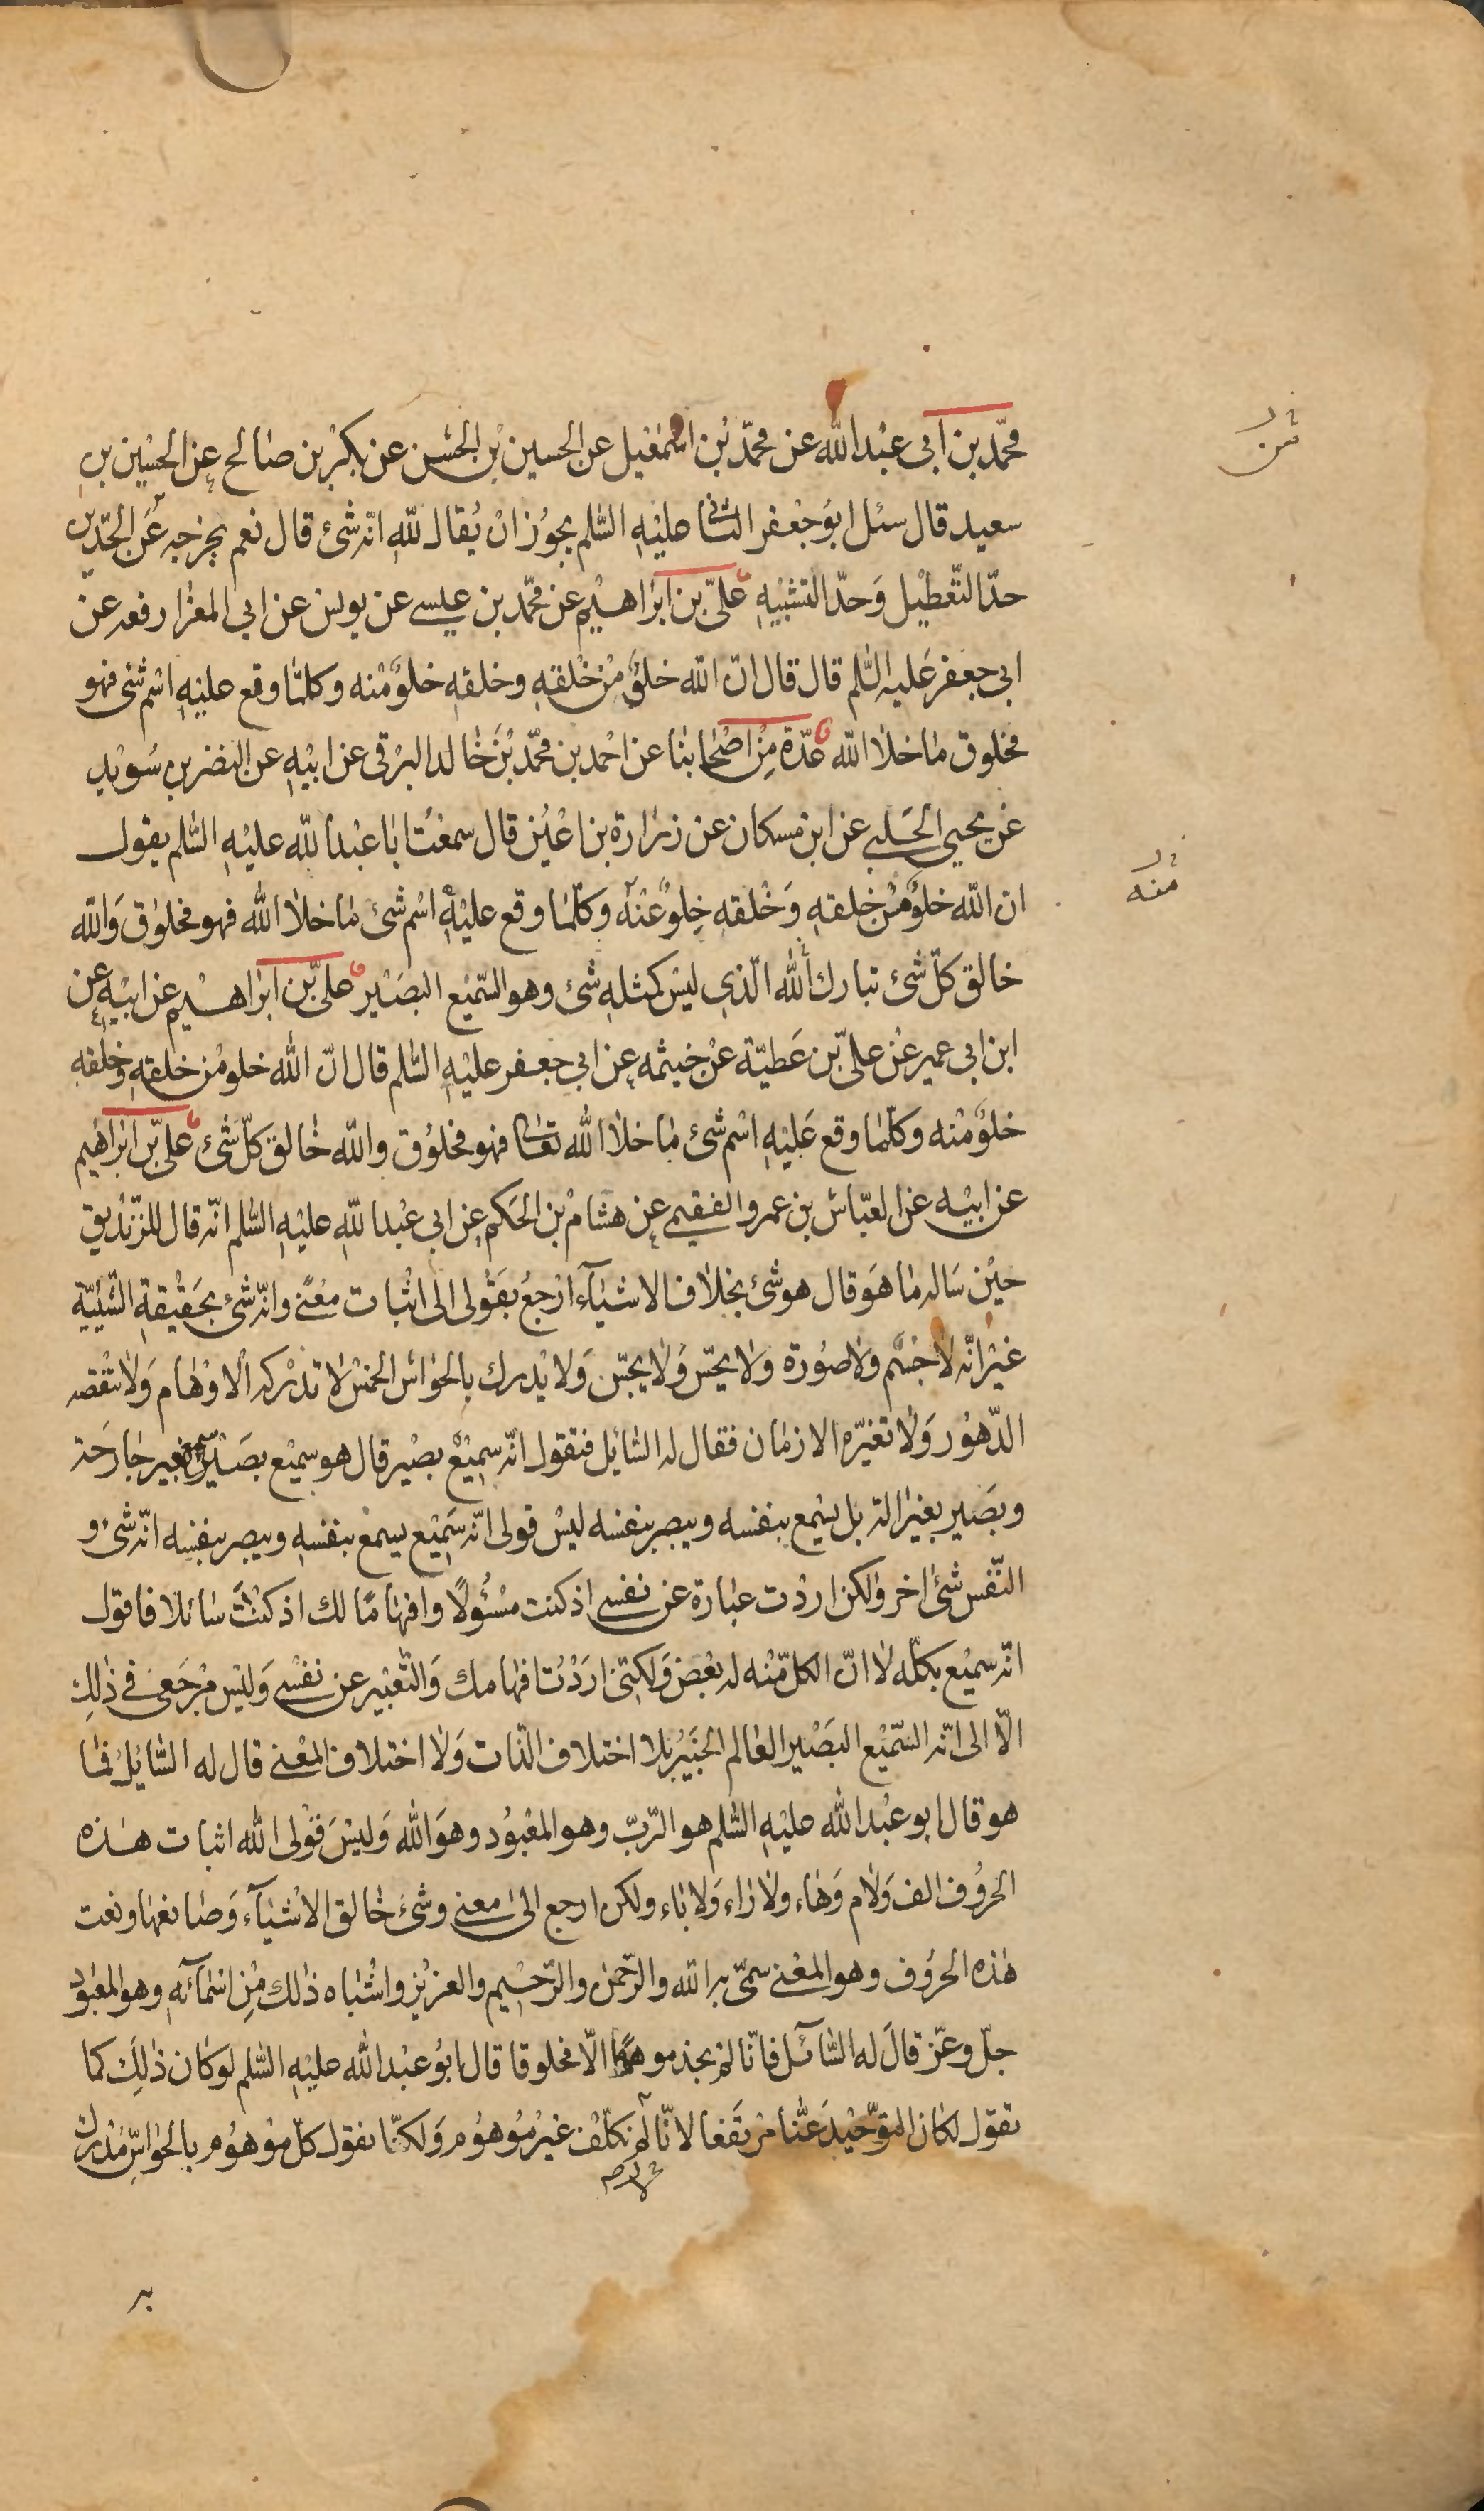 محمّد بن ابى عبد اللّه عن محمّد بن اسمعيل عن الحسين بن الحسن عن بكر بن صالح عن الحسين بن
سعيد قال سئل ابو جعفر الثانى عليه السّلم يجوز ان يُقال للّه انّه شئ قال نعم يخرجه عن الحدّين
حدّ التّعطيل وحدّ التّشبيه علىّ بن ابراهيم عن محمّد بن عيسى عن يونس عن ابى المغرا رفعه عن
ابى جعفر عليه السّلم قال قال انّ اللّه خلوٌ من خلقه وخلقه خلوٌ منه وكلّما وقع عليه اسم شئ فهو
مخلوق ما خلا اللّه عدّة من اصحابنا عن احمد بن محمّد بن خالد البرقى عن ابيه عن النضر بن سُويد
عن يحيى الحلبى عن ابن مسكان عن زرارة بن اعيُن قال سمعت ابا عبد اللّه عليه السّلم يقول
ان اللّه خلوٌ من خلقه وخلقه خلوٌ عنه وكلّما وقع عليه اسم شئ ما خلا اللّه فهو مخلوق واللّه
خالق كلّ شئ تبارك اللّه الّذى ليس كمثله شئ وهو السّميع البصير علىّ بن ابراهيم عن ابيه عن
ابن ابى عمير عن علىّ بن عطيّة عن خيثمه عن ابى جعفر عليه السّلم قال انّ اللّه خلو من خلقه وخلقه
خلوٌ منه وكلّما وقع عليه اسم شئ ما خلا اللّه تعالى فهو مخلوق واللّه خالق كلّ شئ علىّ بن ابراهيم
عن ابيه عن العبّاس بن عمرو الفقيمى عن هشام بن الحكم عن ابى عبد اللّه عليه السّلم انّه قال للزنديق
حين سَاله ما هو قال هو شئ بخلاف الاشيآء ارجعُ بقولى الى اثبات معنًى وانّه شئ بحقيقة الشّيئيّة
غير انّه لا جسم ولا صورة ولا يحسّ ولا يجسّ ولا يدرك بالحواسّ الخمس لا تدركه الاوهام ولا تنقصه
الدّهور ولا تغيّره الازمان فقال له السّائل فتقول انّه سميع بصير قال هو سميع بصير سميع بغير جارحة
وبصير بغير الة بل يسمع بنفسه ويبصر بنفسه ليس قولى انّه سميع يسمع بنفسه ويبصر بنفسه انّه شئ و
النّفس شئ اخر ولكن اردت عبارة عن نفسى اذ كنت مسؤولًا وافهامًا لك اذ كنت سائلا فاقول
انّه سميع بكلّه لا انّ الكلّ منه له بعض ولكنّى اردت افهامك والتّعبير عن نفسى وليس مرجعى فى ذلك
الّا الى انّه السّميع البصير العالم الخبير بلا اختلاف الذّات ولا اختلاف المعنى قال له السّائل فما
هو قال ابو عبد اللّه عليه السّلم هو الرّبّ وهو المعبود وهو اللّه وليس قولى اللّه اثبات هذه
الحروف الف ولام وهاء ولا راء ولا باء ولكن ارجع الى معنى وشئ خالق الاشيآء وصانعها ونعت
هذه الحروف وهو المعنى سمّى به اللّه والرّحمن والرّحيم والعزيز واشباه ذلك من اسمآئه وهو المعبود
جلّ وعزّ قال له السّآئل فانّا لم نجد موهومًا الّا مخلوقا قال ابو عبد اللّه عليه السّلم لو كان ذلك كما
تقول لكان التوّحيد عنّا مرتفعا لانّا لم نكلّف غير موهوم ولكنّا نقول كلّ موهوم بالحواسّ مدرك
من
منه
به